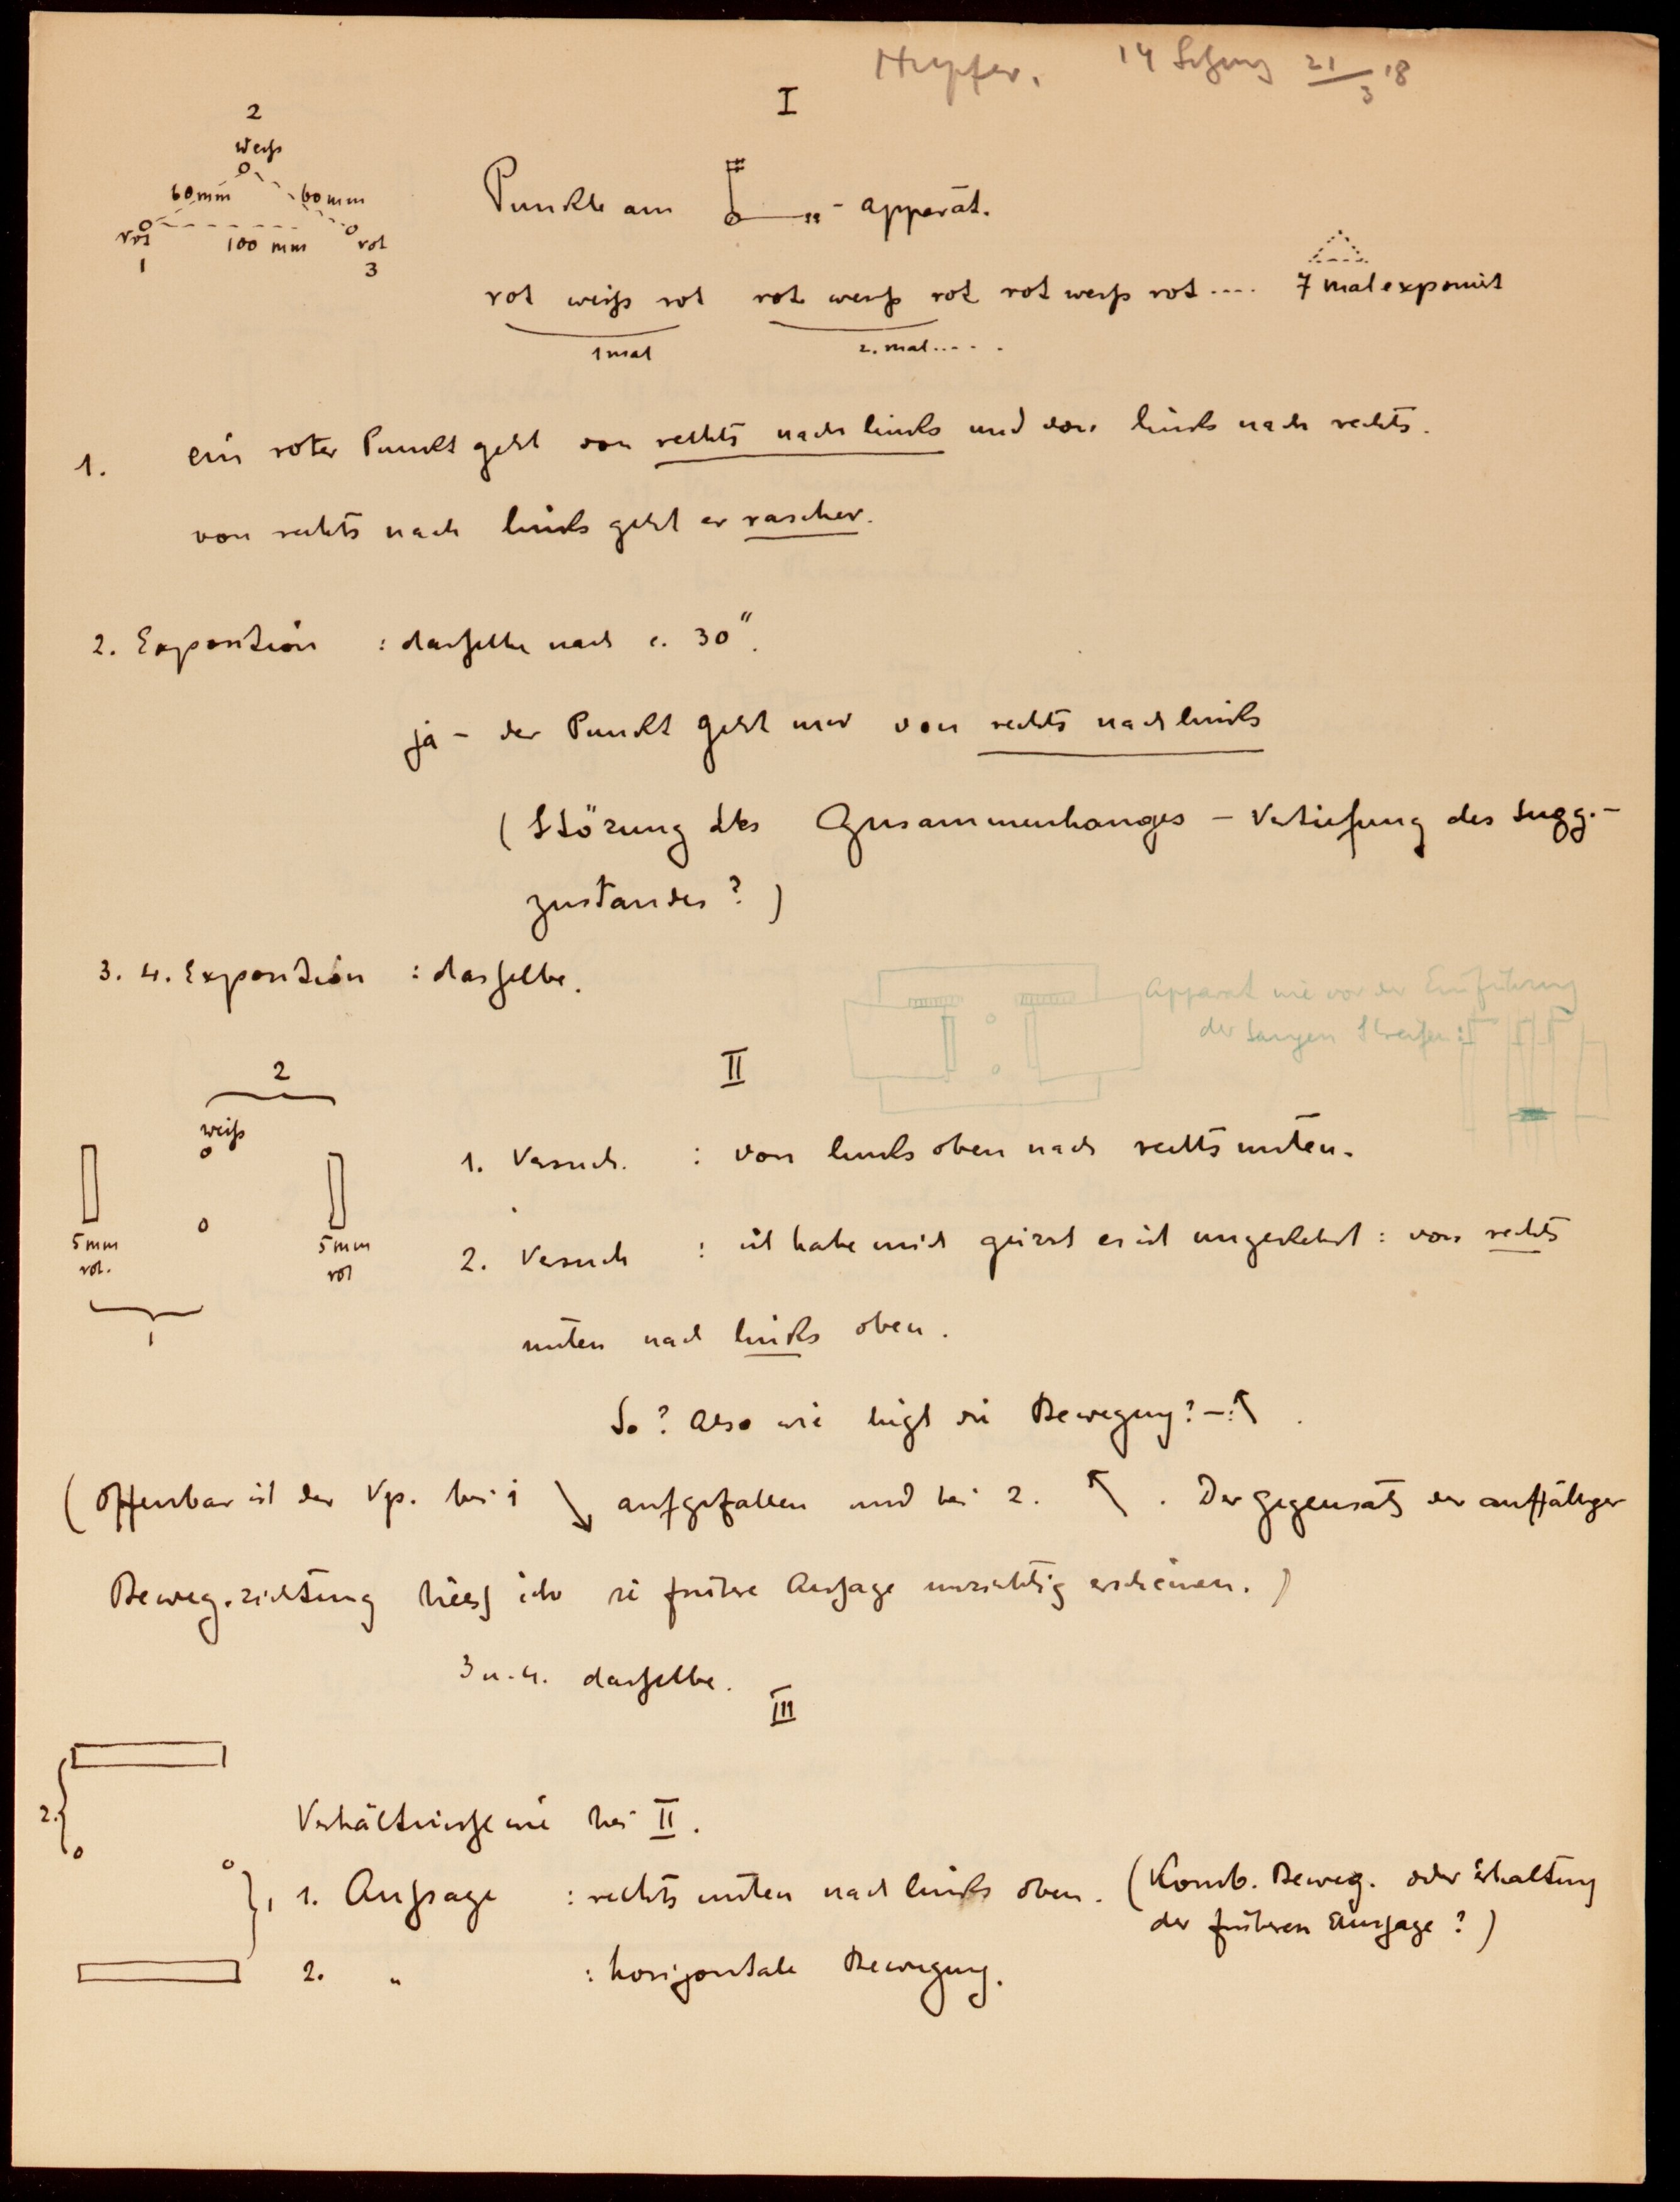 Hupfer. 14 Sitzung 21/3 18
I
2
weiß
60 mm 60 mm
rot 100 mm rot
1 3
Punkte am - apparat.
rot weiß rot rot weiß rot rot weiß rot .... 7 mal exponiert
1 mal 2. mal.....
1. ein roter Punkt geht von rechts nach links und von links nach rechts.
von rechts nach links geht er rascher.
2. Exposition : dasselbe nach c. 30".
ja – der Punkt geht nur von rechts nach links
(Störung des Zusammenhanges – Vertiefung des Sugg.-
zustandes?)
3. 4. Exposition : dasselbe.
Apparat wie vor der Einführung
der langen Streifen:
II
2
weiß
5 mm 5 mm
rot. rot
1
1. Versuch. : von links oben nach rechts unten.
2. Versuch : ich habe mich geirrt es ist umgekehrt : von rechts
unten nach links oben.
So? Also wie liegt die Bewegung? – : ↖
(Offenbar ist der Vp. bei 1 ↘ aufgefallen und bei 2. ↖ . Der Gegensatz der auffälliger
Beweg.richtung liess ihr die frühere Aussage unrichtig erscheinen.)
3 u. 4. dasselbe.
III
2.
Verhältnisse wie bei II.
1
1. Aussage : rechts unten nach links oben. (Komb. Beweg. oder Erhaltung
der früheren Aussage?)
2. " : horizontale Bewegung.